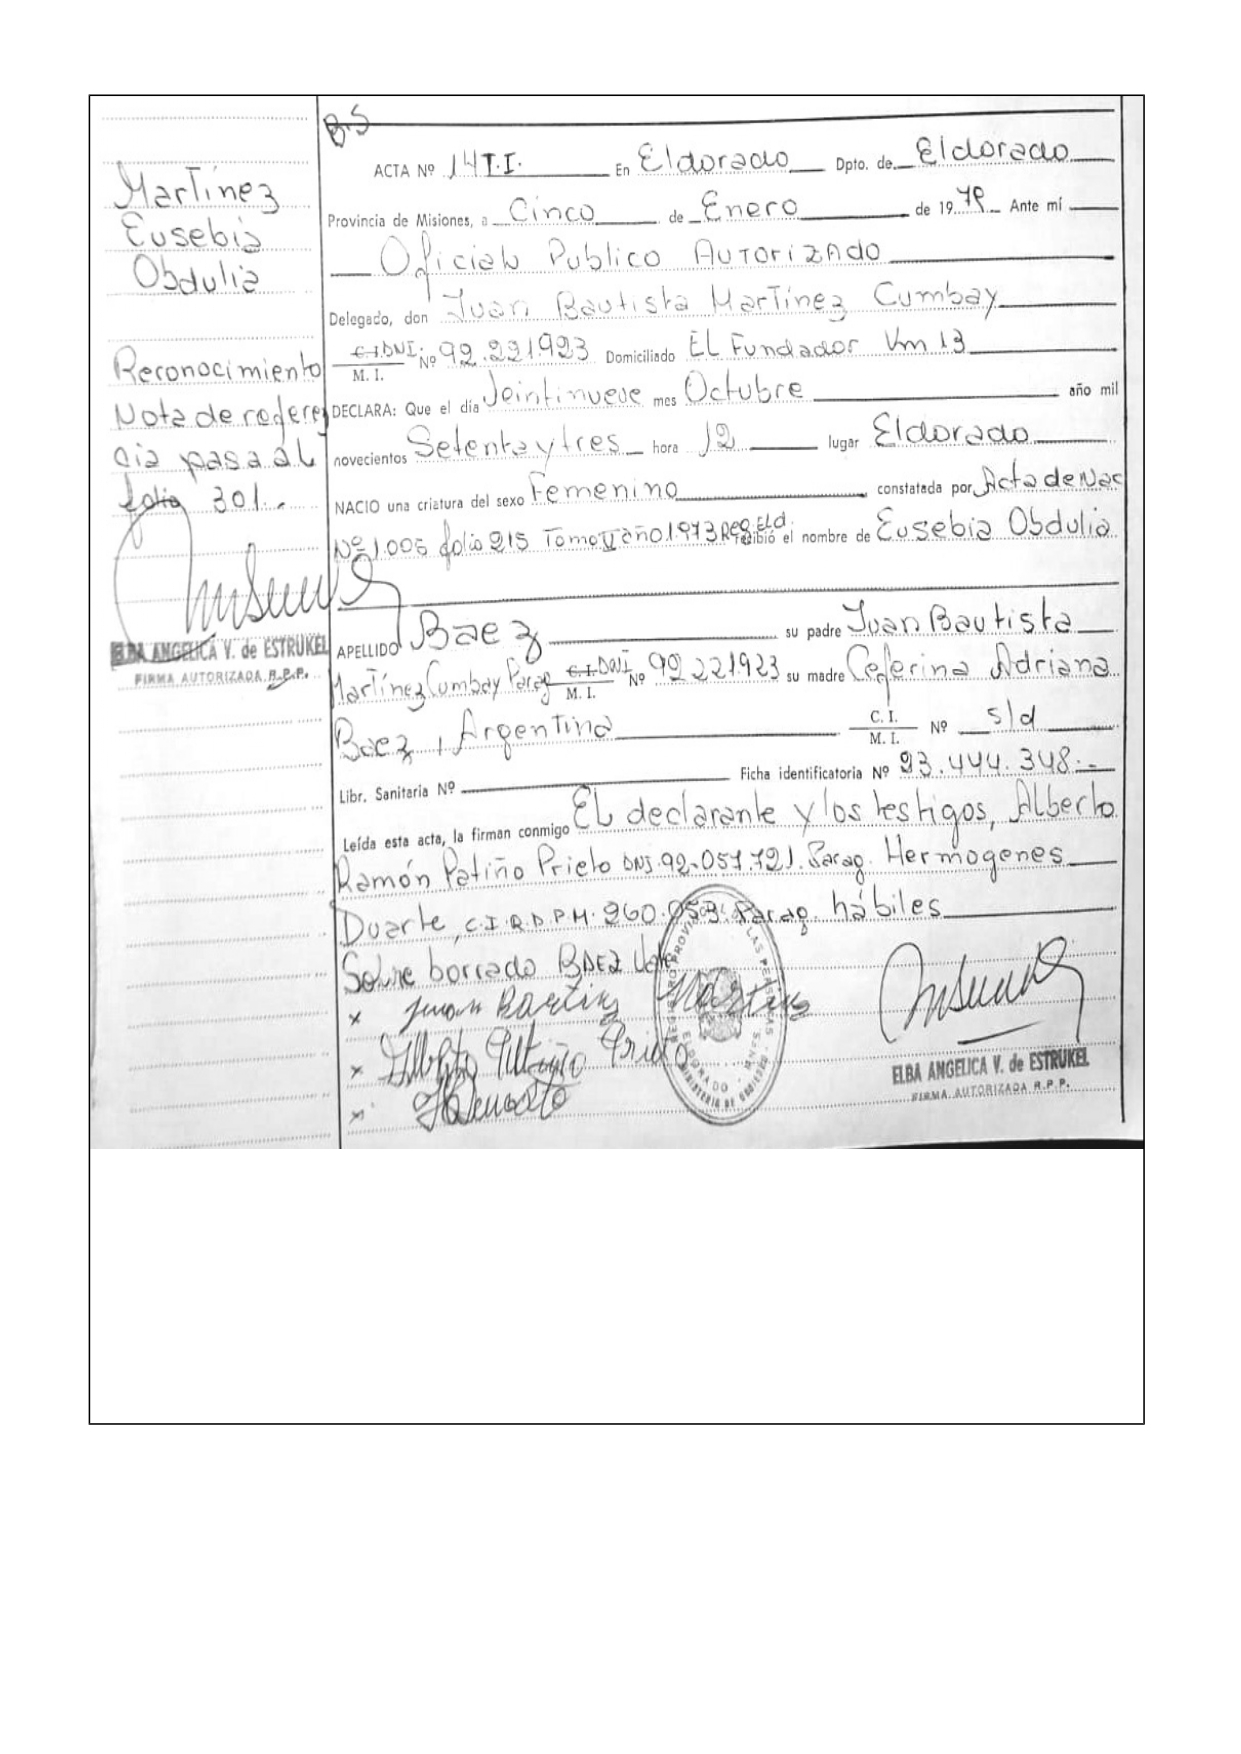 B.S
ACTA Nº 14 T.I. En Eldorado Dpto. de Eldorado
Provincia de Misiones, a Cinco de Enero de 1979 Ante mí
Oficial Publico Autorizado
Delegado, don Juan Bautista Martínez Cumbay
C.I. DNI: M. I. Nº 92.221.923 Domiciliado EL Fundador Km 13
DECLARA: Que el día Veintinueve mes Octubre año mil
novecientos Setenta y tres hora 12 lugar Eldorado
NACIO una criatura del sexo Femenino constatada por Acta de Nac
Nº 1.005 folio 215 Tomo V año 1.973 Reg. Eld. recibió el nombre de Eusebia Obdulia
APELLIDO Baez su padre Juan Bautista
Martínez Cumbay Parag C.I. DNI M. I. Nº 92 221.923 su madre Ceferina Adriana
Baez, Argentina C. I. M. I. Nº s/d
Libr. Sanitaria Nº Ficha identificatoria Nº 93.444.348.-
Leída esta acta, la firman conmigo EL declarante y los testigos, Alberto
Ramón Patiño Prieto DNI. 92.057.721. Parag. Hermogenes
Duarte, C.I.R.D.P.M. 260.053. Parag. hábiles
Sobre borrado BAEZ Vale
x Juan Bautis Martines
x Alberto Patiño Prieto
x HDuarte
ELBA ANGELICA V. de ESTRUKEL
FIRMA AUTORIZADA R.P.P.
REGISTRO PROVINCIAL DE LAS PERSONAS
ELDORADO - MNES.
MINISTERIO DE GOBIERNO
Martínez
Eusebia
Obdulia
Reconocimiento
Nota de referen
cia pasa al
folio 301.-
ELBA ANGELICA V. de ESTRUKEL
FIRMA AUTORIZADA R.P.P.